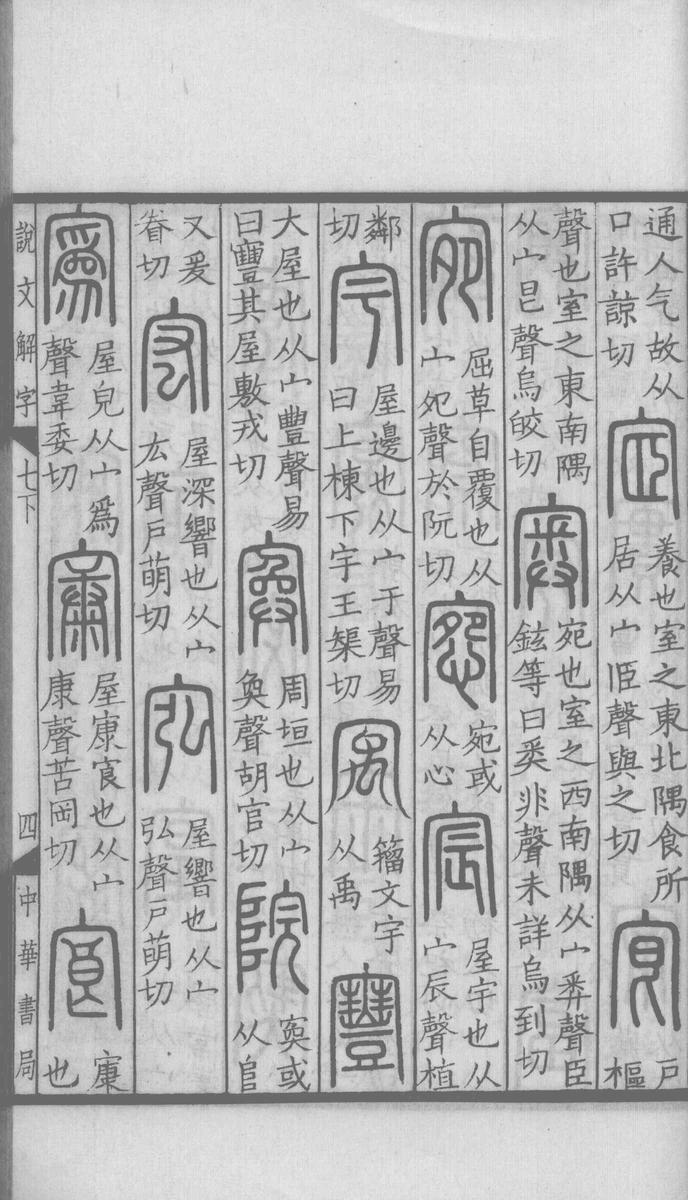 通人气故从口許諒切 宧 養也室之東北隅食所居从宀𦣝聲與之切 㝔 戶樞
聲也室之東南隅从宀㫐聲烏皎切 奧 宛也室之西南隅从宀𢍏聲臣鉉等曰𢍏非聲未詳烏到切
宛 屈草自覆也从宀夗聲於阮切 惌 宛或从心 宸 屋宇也从宀辰聲植
鄰切 宇 屋邊也从宀于聲易曰上棟下宇王榘切 㝢 籀文宇从禹 寷
大屋也从宀豐聲易曰寷其屋敷戎切 寏 周垣也从宀奐聲胡官切 院 寏或从𨸏
又爰眷切 宏 屋深響也从宀厷聲戶萌切 宖 屋響也从宀弘聲戶萌切
寪 屋皃从宀爲聲韋委切 㝩 屋㝩㝗也从宀康聲苦岡切 㝗 㝩也
說文解字 七下 四 中華書局